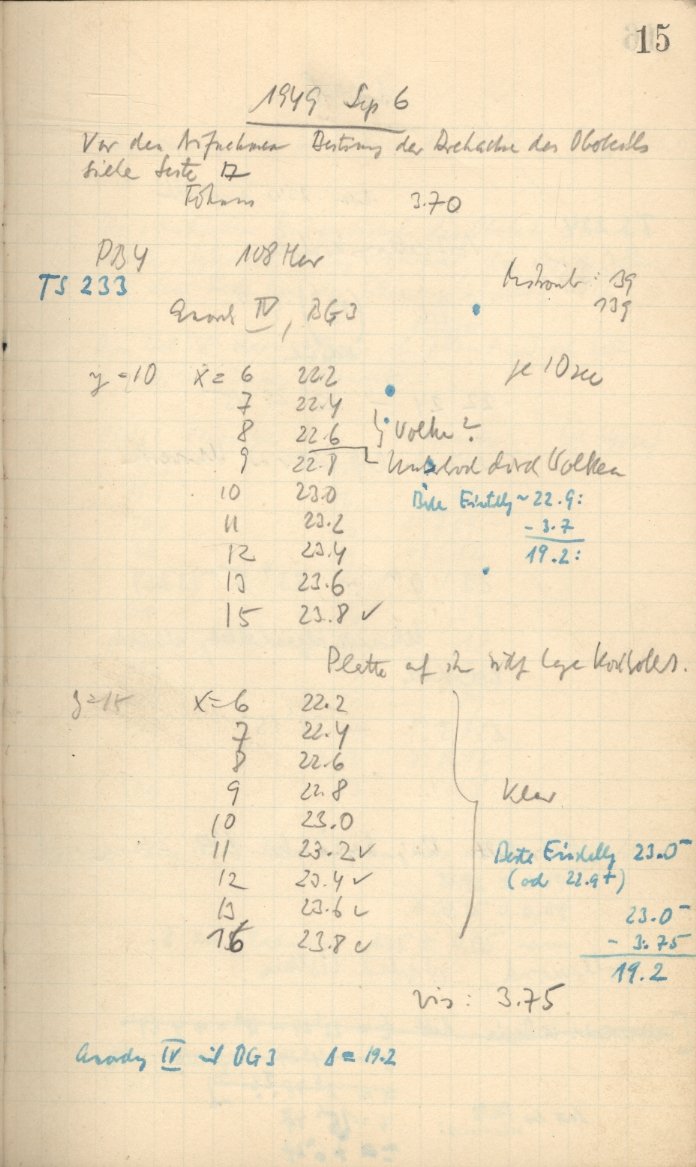 15
1949 Sep 6
Vor den Aufnahmen der Drehachse des
siehe Seite 17
Fokus 3.70
PBY 108
TS 233
IV, BG3
y=10 x=6 22.2 je 10 sec
7 22.4
8 22.6 Wolke?
9 22.8 durch Wolken
10 23.0 Einstellg ~ 22.9:
11 23.2 - 3.7
12 23.4 19.2:
13 23.6
15 23.8 ✓
Platte auf
y=15 x=6 22.2
7 22.4
8 22.6
9 22.8 Klar
10 23.0
11 23.2 ✓ Beste Einstellg 23.0-
12 23.4 ✓ (od 22.9+)
13 23.6 ✓ 23.0-
15 23.8 ✓ - 3.75
19.2
vis: 3.75
IV mit BG3 Δ = 19.2